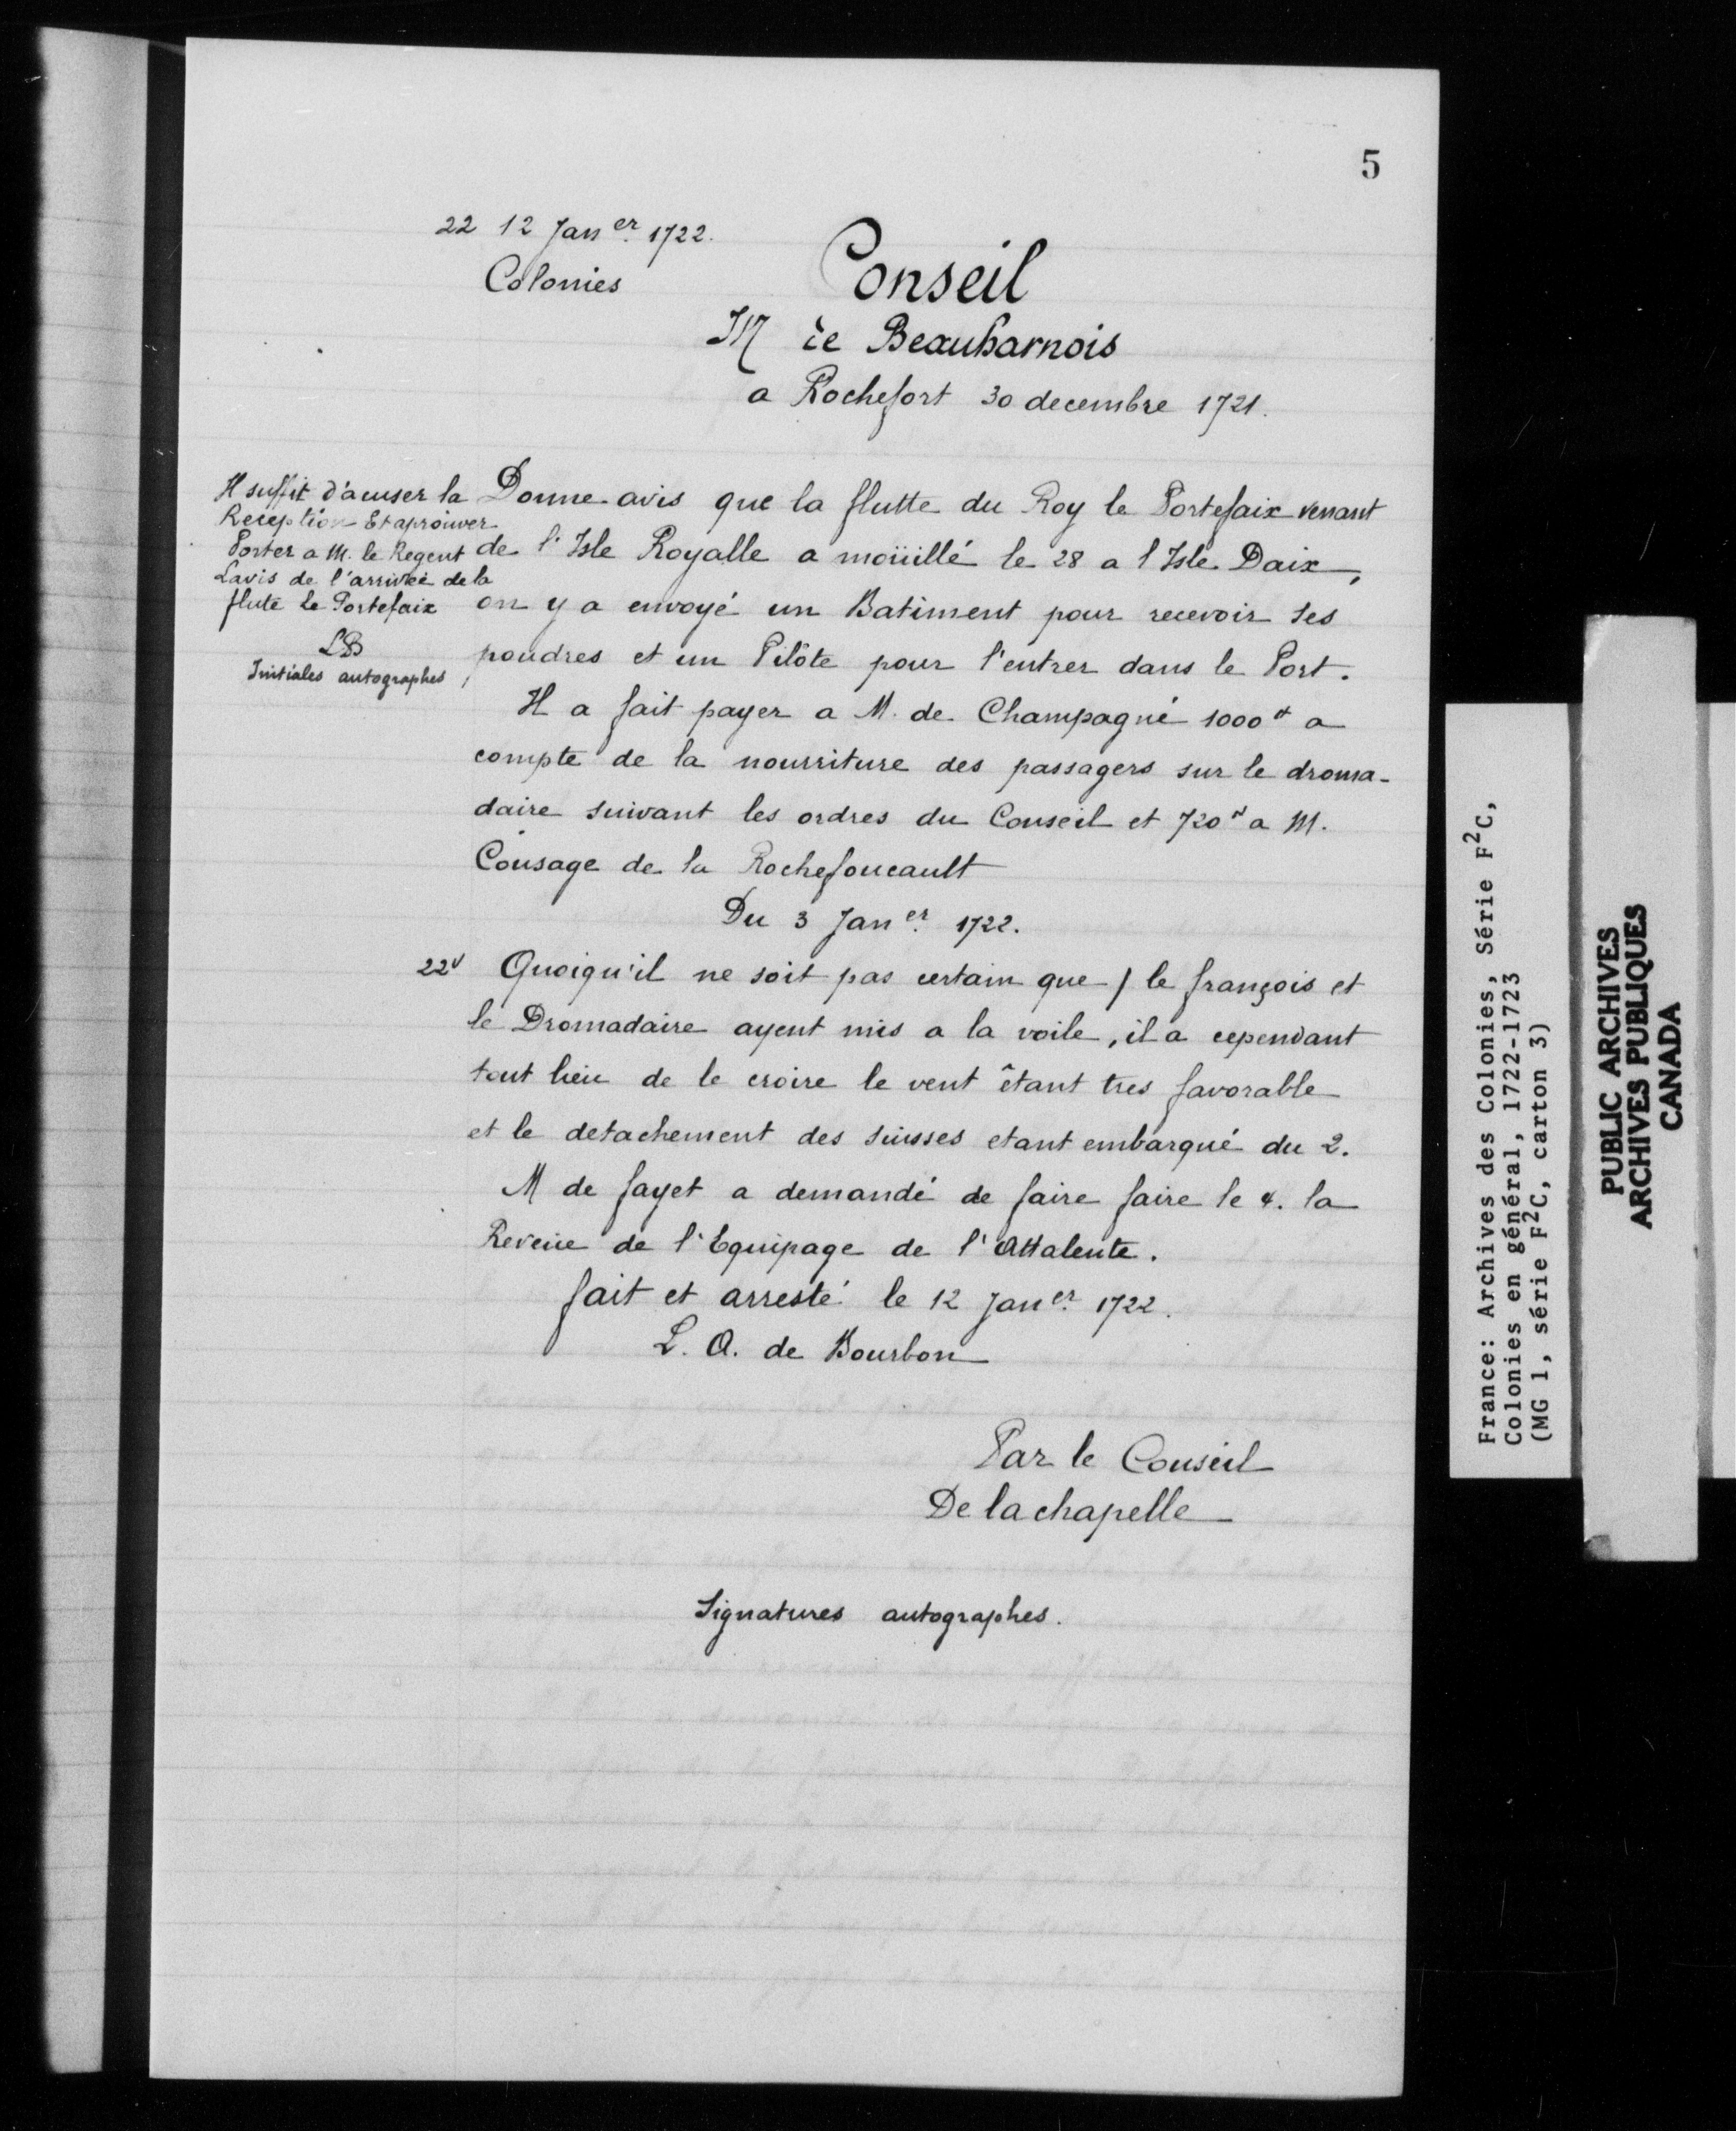 5
22 12 Jan er. 1722.
Colonies
Conseil
M de Beauharnois
a Rochefort 30 decembre 1721.
Il suffit d'acuser la
Reception Et aprouver
Porter a M. le Regent
Lavis de l'arriveé de la
flute le Portefaix
LB
Initiales autographes
Donne avis que la flutte du Roy le Portefaix venant
de l'Isle Royalle a moüillé le 28 a l Isle Daix,
on y a envoyé un Batiment pour recevoir ses
poudres et un Pilôte pour l'entrer dans le Port.
Il a fait payer a M. de Champagné 1000 ₶ a
compte de la nourriture des passagers sur le droma-
daire suivant les ordres du Conseil et 720 ₶ a M.
Cousage de la Rochefoucault
Du 3 Jan er. 1722.
22v Quoiqu'il ne soit pas certain que / le françois et
le Dromadaire ayent mis a la voile, il a cependant
tout lieu de le croire le vent êtant tres favorable
et le detachement des suisses etant embarqué du 2.
M de fayet a demandé de faire faire le 4. la
Reveüe de l'Equipage de l'Attalente.
fait et arresté le 12 Jan er. 1722.
L. A. de Bourbon
Par le Conseil
De lachapelle
Signatures autographes.
France: Archives des Colonies, Série F²C,
Colonies en général, 1722-1723
(MG 1, série F²C, carton 3)
PUBLIC ARCHIVES
ARCHIVES PUBLIQUES
CANADA